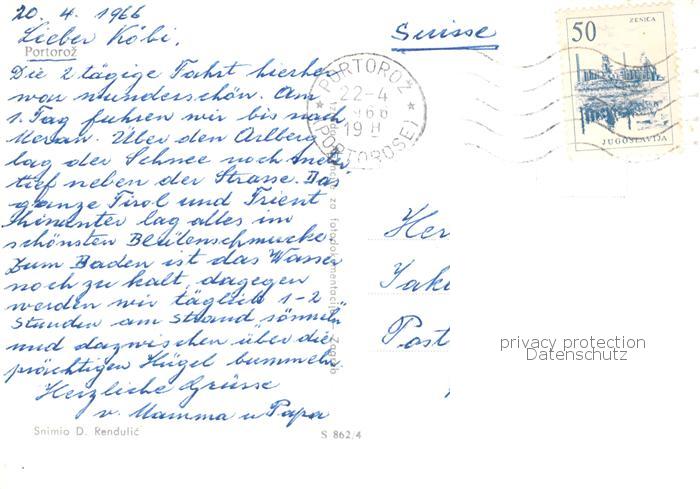 20. 4. 1966
Suisse
Lieber Köbi,
Portorož
Die 2 tägige Fahrt hierher
war wunderschön. Am
1. Tag fuhren wir bis nach
Meran. Über den Arlberg
lag der Schnee noch meter
tief neben der Strasse. Das
ganze Tirol und Trient
hinunter lag alles im
schönsten Blütenschmucke.
Zum Baden ist das Wasser
noch zu kalt, dagegen
werden wir täglich 1-2
Stunden am Strand sönneln
und dazwischen über die
prächtigen Hügel bummeln.
Herzliche Grüsse
v. Mamma u Papa
Snimio D. Rendulić
S 862/4
za fotodokumentaciju - Zagreb
PORTOROŽ
22-4
1966
19 H
PORTOROSE
50
ZENICA
JUGOSLAVIJA
Her
Jak
Post
privacy protection
Datenschutz